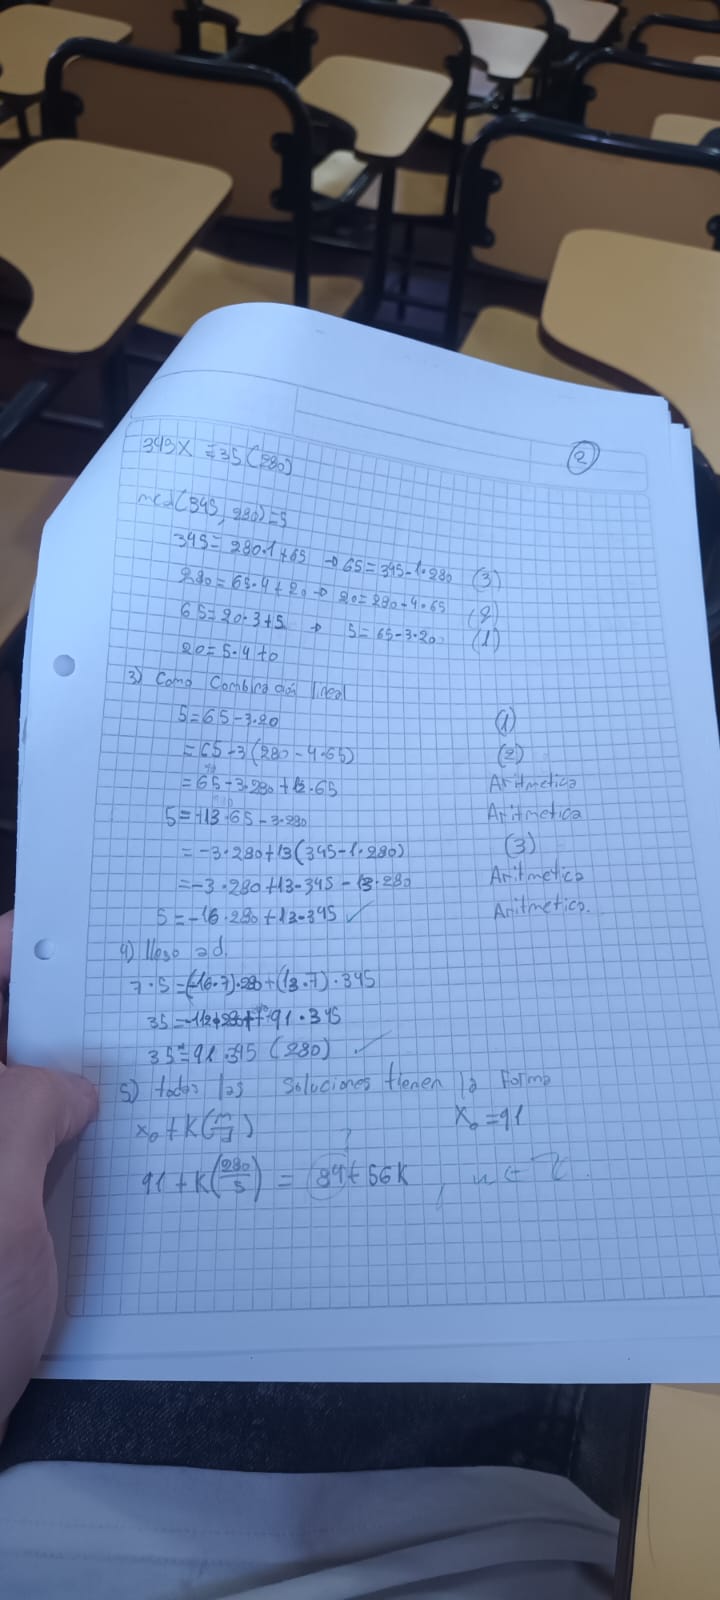 345x ≡ 35 (280)
②
mcd(345, 280) = 5
345 = 280·1 + 65 → 65 = 345 - 1·280 (3)
280 = 65·4 + 20 → 20 = 280 - 4·65 (2)
65 = 20·3 + 5 → 5 = 65 - 3·20 (1)
20 = 5·4 + 0
3) Como Combinación lineal
5 = 65 - 3·20 (1)
= 65 - 3(280 - 4·65) (2)
= 65 - 3·280 + 12·65 Aritmetica
5 = +13·65 - 3·280 Aritmetica
= -3·280 + 13(345 - 1·280) (3)
= -3·280 + 13·345 - 13·280 Aritmetica
5 = -16·280 + 13·345 ✓ Aritmetica.
4) llevo a d.
7·5 = (-16·7)·280 + (13·7)·345
35 = -112·280 + 91·345
35 ≡ 91·345 (280) ✓
5) todas las soluciones tienen la forma
x₀ + K(m/d) x₀ = 91
?
91 + K(280/5) = 89 + 56K , k ∈ ℤ.